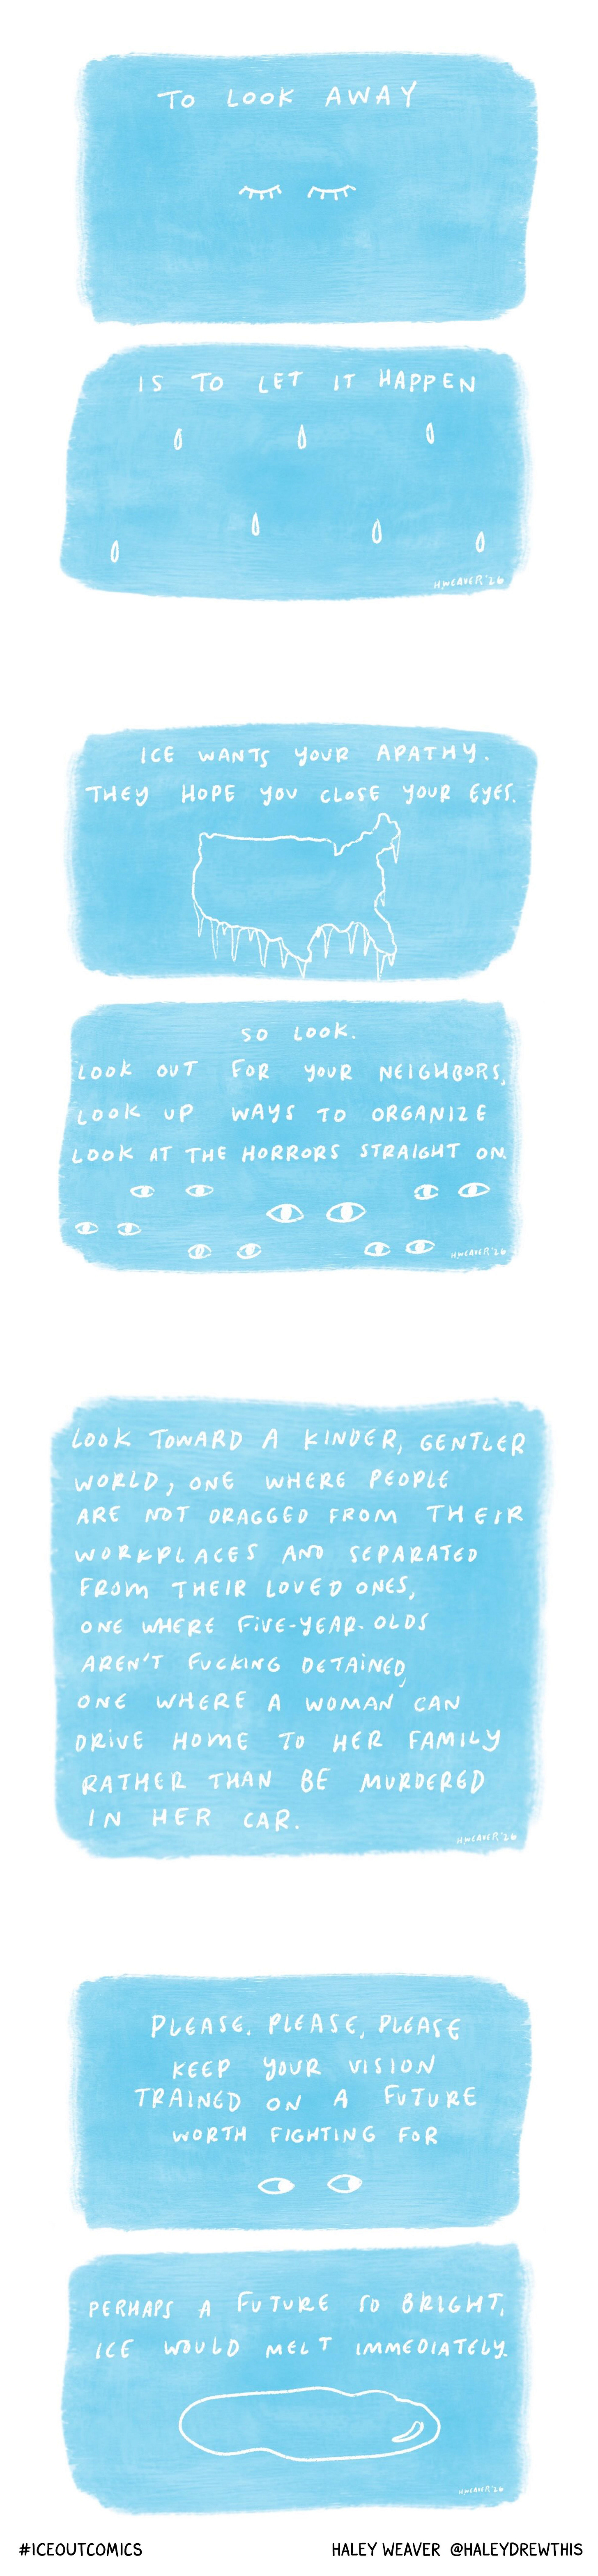 TO LOOK AWAY
IS TO LET IT HAPPEN
H.WEAVER '26
ICE WANTS YOUR APATHY.
THEY HOPE YOU CLOSE YOUR EYES.
SO LOOK.
LOOK OUT FOR YOUR NEIGHBORS,
LOOK UP WAYS TO ORGANIZE
LOOK AT THE HORRORS STRAIGHT ON.
H.WEAVER '26
LOOK TOWARD A KINDER, GENTLER
WORLD, ONE WHERE PEOPLE
ARE NOT DRAGGED FROM THEIR
WORKPLACES AND SEPARATED
FROM THEIR LOVED ONES,
ONE WHERE FIVE-YEAR-OLDS
AREN'T FUCKING DETAINED,
ONE WHERE A WOMAN CAN
DRIVE HOME TO HER FAMILY
RATHER THAN BE MURDERED
IN HER CAR.
H.WEAVER '26
PLEASE, PLEASE, PLEASE
KEEP YOUR VISION
TRAINED ON A FUTURE
WORTH FIGHTING FOR
PERHAPS A FUTURE SO BRIGHT,
ICE WOULD MELT IMMEDIATELY.
H.WEAVER '26
#ICEOUTCOMICS
HALEY WEAVER @HALEYDREWTHIS